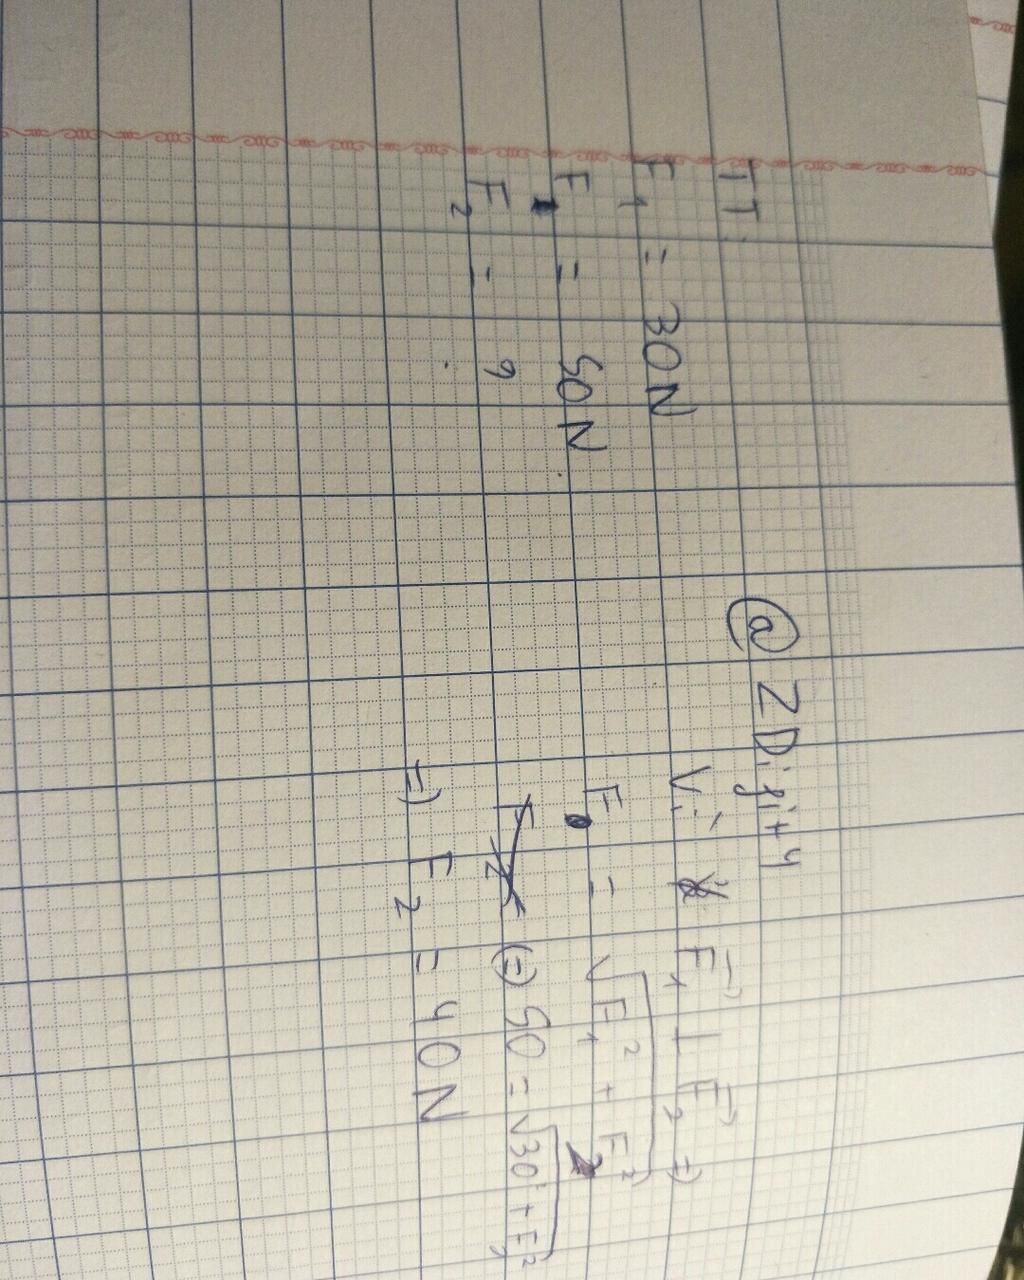 TT:
F₁ = 30N
F = 50N
F₂ = ?
@ ZDifi+4
Vì: F₁→ ⊥ F₂→ =)
F = √F₁² + F₂²
(=) 50 = √30² + F₂²
=) F₂ = 40N